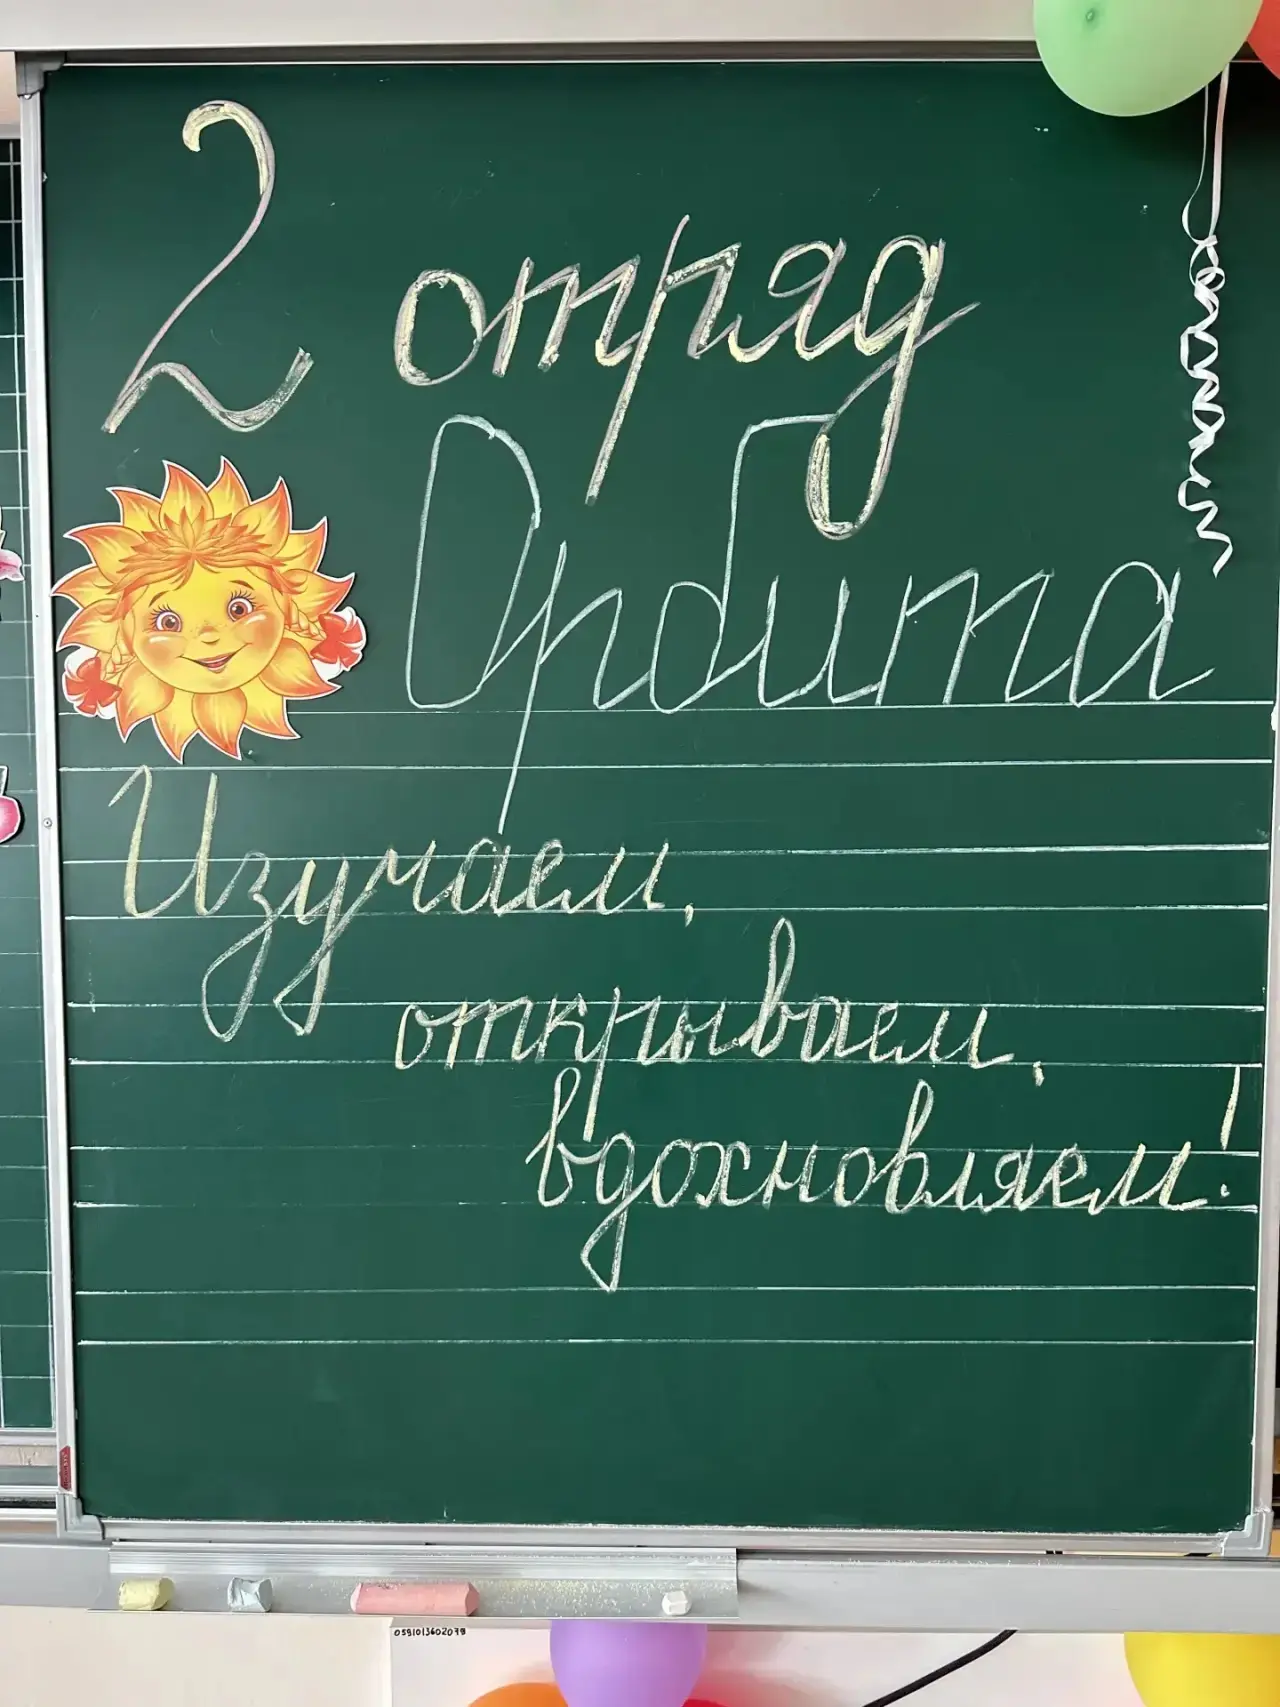 2 отряд
Орбита
Изучаем,
открываем,
вдохновляем!
0591013602079